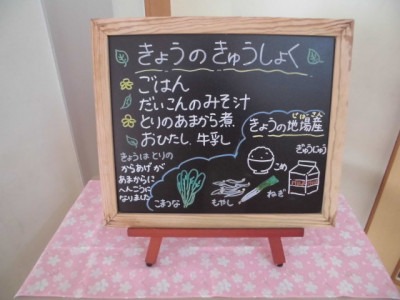 きょうのきゅうしょく
ごはん
だいこんのみそ汁
とりのあまから煮
おひたし、牛乳
きょうはとりの
からあげが
あまからに
へんこうに
なりました
きょうの地場産
じばさん
こめ
ぎゅうにゅう
こまつな
もやし
ねぎ